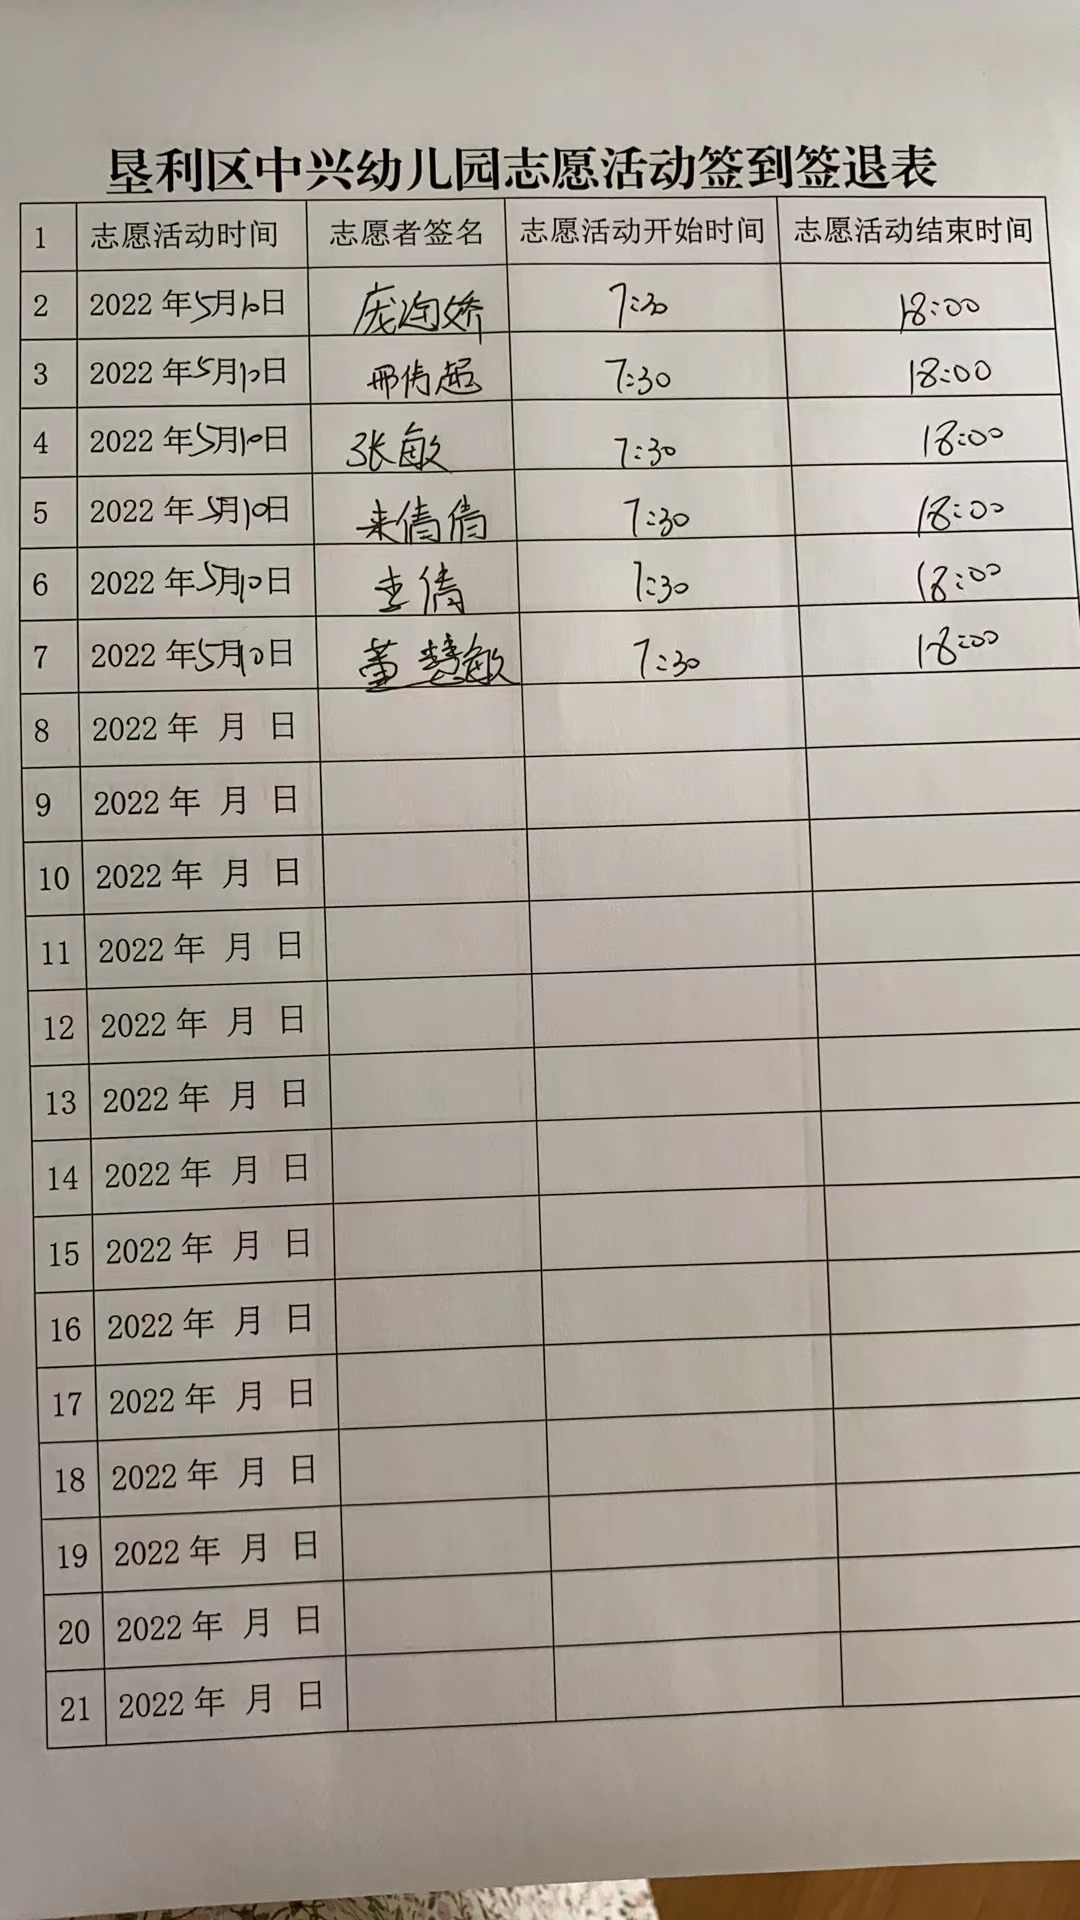 垦利区中兴幼儿园志愿活动签到签退表
1 志愿活动时间 志愿者签名 志愿活动开始时间 志愿活动结束时间
2 2022年5月10日 庞洵娇 7:30 18:00
3 2022年5月10日 邢倩超 7:30 18:00
4 2022年5月10日 张敏 7:30 18:00
5 2022年5月10日 来倩倩 7:30 18:00
6 2022年5月10日 倩 7:30 18:00
7 2022年5月10日 董慧敏 7:30 18:00
8 2022年 月 日
9 2022年 月 日
10 2022年 月 日
11 2022年 月 日
12 2022年 月 日
13 2022年 月 日
14 2022年 月 日
15 2022年 月 日
16 2022年 月 日
17 2022年 月 日
18 2022年 月 日
19 2022年 月 日
20 2022年 月 日
21 2022年 月 日